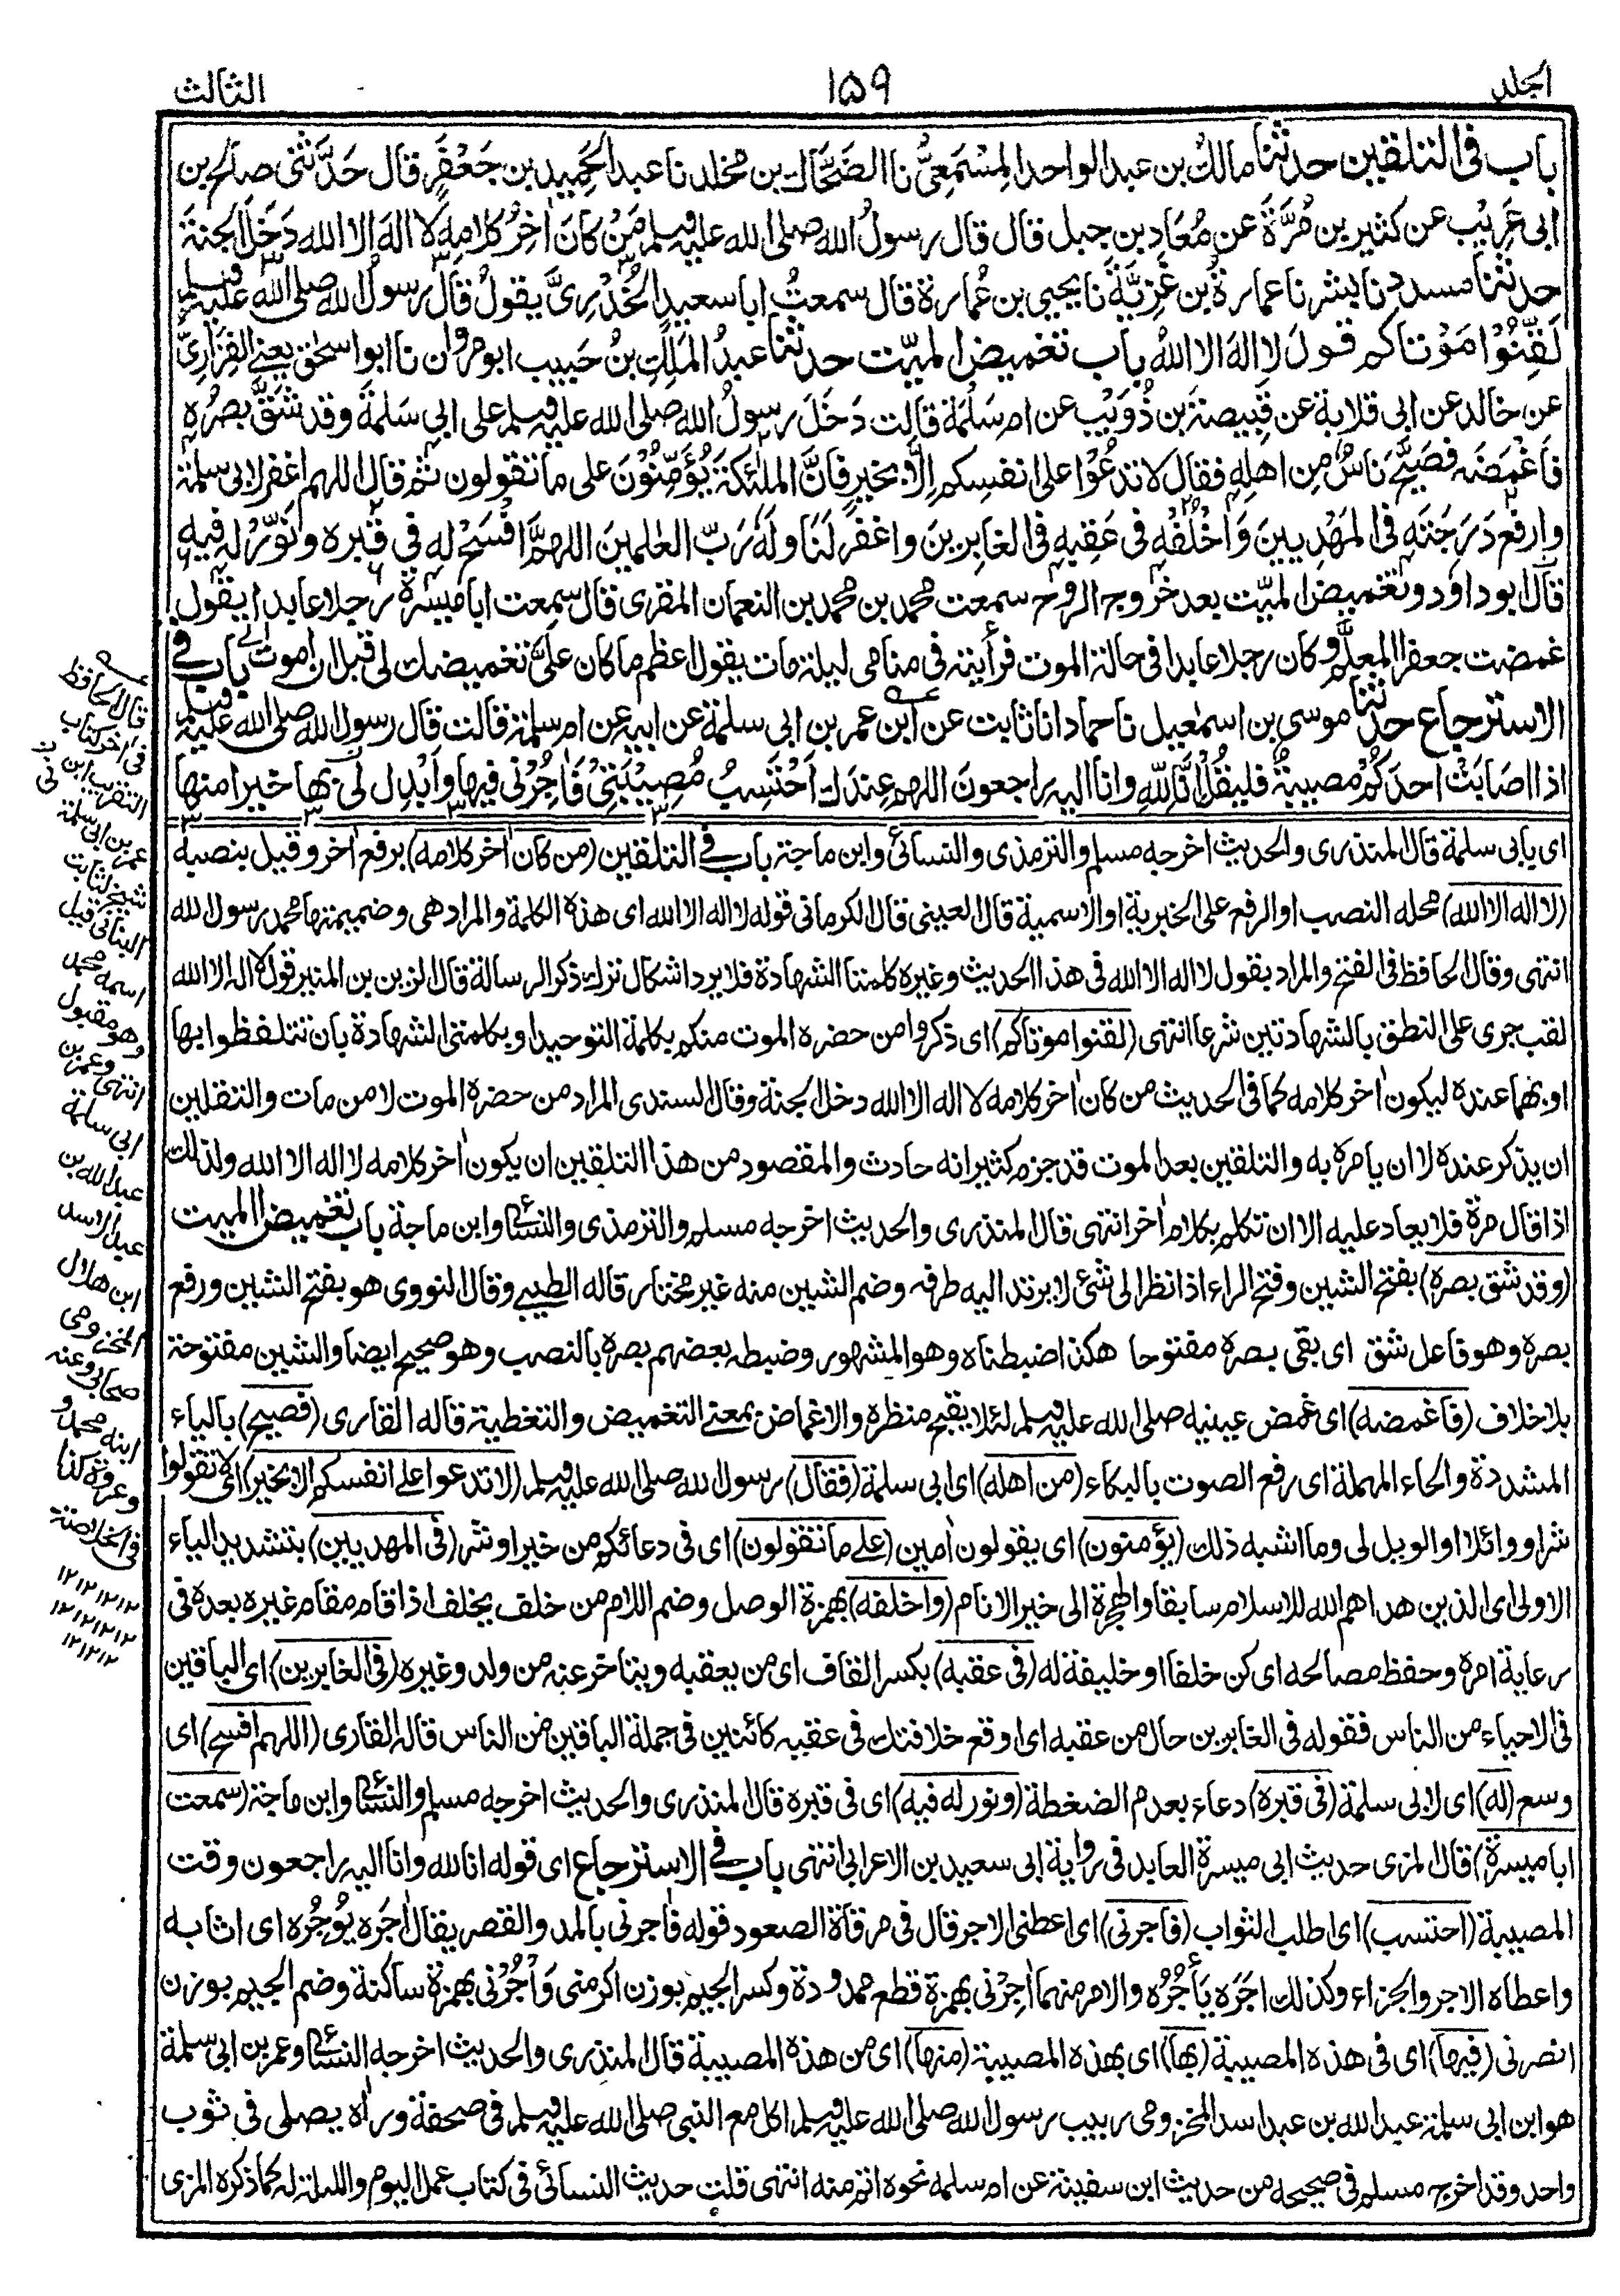 الجلد
١٥٩
الثالث
باب في التلقين حدثنا مالك بن عبد الواحد المِسْمَعِيُّ نا الضَحَّاك بن مخلد نا عبد الحَمِيد بن جَعْفَرٍ قال حَدَّثَنى صالح بن
ابى عَرِيْب عن كثير بن مُرَّةَ عن مُعَاذِ بن جبل قال قال رسولُ الله صلى الله عليه وسلم مَنْ كانَ اٰخِرُ كلامِهِ لا اله الا الله دَخَلَ الجنةَ
حدثنا مسدد نا بشر نا عمارةُ بن غَزِيَّةَ نا يحيى بن عُمارة قال سمعتُ ابا سعيدٍ الخُدْرِىَّ يقولُ قال رسولُ الله صلى الله عليه وسلم
لَقِّنُوْا مَوْتاكم قولَ لا الهَ الا اللهُ باب تغميض الميّت حدثنا عبدُ المَلِكِ بنُ حَبيب ابو مروان نا ابو اسحٰق يعنے الفَزارِىَّ
عن خالد عن ابى قلابة عن قَبِيصَةَ بن ذُوَيْب عن ام سَلَمَة قالت دَخَلَ رسولُ الله صلى الله عليه وسلم على ابى سَلَمةَ وقد شَقَّ بصرُه
فَاَغْمَضَه فصَيَّحَ ناسٌ مِن اهلِهٖ فقال لا تدعُوْا على انفسِكم اِلَّا بخيرٍ فانَّ الملٰئكةَ يُؤَمِّنُوْنَ على ما تقولون ثم قال اللهم اغفر لابى سلمة
وارفع دَرَجَتَه فى المَهْدِيينَ وَاخْلُفْه فى عَقِبِه فى الغابرينَ واغفر لَنَا ولَهُ رَبَّ العٰلمينَ اللهمَّ افْسَحْ له في قبره ونَوِّرْ له فيه
قال ابو داود وتغميض الميّت بعد خروج الروح سمعت محمد بن محمد بن النعمان المقرى قال سمعت ابا ميسرة رجلا عابدا يقول
غمضت جعفرا المعلِّمَ وكان رجلا عابدا فى حالة الموت فرأيته فى منامى ليلة مات يقول اعظم ما كان علىَّ تغميضك لى قبل ان اموت باب في
الاسترجاع حدثنا موسى بن اسمٰعيل نا حماد انا ثابت عن ابن عمر بن ابى سلمة عن ابيه عن ام سلمة قالت قال رسول الله صلى الله عليه وسلم
اذا اصَابَتْ احدَكُمْ مصيبةٌ فليقُلْ اِنَّا لِلّٰهِ وانا اليه راجعونَ اللهم عِندَك اَحْتَسِبُ مُصِيْبَتِىْ فَاٰجُرْنى فيها واَبْدِل لى بها خيرا منها
اى يا ابى سلمة قال المنذرى والحديث اخرجه مسلم والترمذى والنسائى وابن ماجة باب في التلقين (من كان اٰخر كلامه) برفع اٰخر وقيل بنصبه
(لا اله الا الله) محله النصب او الرفع على الخبرية او الاسمية قال العينى قال الكرمانى قوله لا اله الا الله اى هذه الكلمة والمراد هى وضميمتها محمد رسول الله
انتهى وقال الحافظ فى الفتح والمراد بقول لا اله الا الله فى هذا الحديث وغيره كلمتا الشهادة فلا يرد اشكال ترك ذكر الرسالة قال الزين بن المنير قول لا اله الا الله
لقب جرى على النطق بالشهادتين شرعا انتهى (لقنوا موتاكم) اى ذكروا من حضره الموت منكم بكلمة التوحيد او بكلمتى الشهادة بان تتلفظوا بها
او بهما عنده ليكون اٰخر كلامه كما فى الحديث من كان اٰخر كلامه لا اله الا الله دخل الجنة وقال السندى المراد من حضره الموت لا من مات والتقلين
ان يذكر عنده لا ان يامره به والتلقين بعد الموت قد جزم كثير انه حادث والمقصود من هذا التلقين ان يكون اٰخر كلامه لا اله الا الله ولذلك
اذا قال مرة فلا يعاد عليه الا ان تكلم بكلام اٰخر انتهى قال المنذرى والحديث اخرجه مسلم والترمذى والنسائى وابن ماجة باب تغميض الميت
(وقد شق بصره) بفتح الشين وفتح الراء اذا نظر الى شئ لا يرتد اليه طرفه وضم الشين منه غير مختار قاله الطيبى وقال النووى هو بفتح الشين ورفع
بصره وهو فاعل شق اى بقى بصره مفتوحا هكذا ضبطناه وهو المشهور وضبطه بعضهم بصره بالنصب وهو صحيح ايضا والشين مفتوحة
بلا خلاف (فاغمضه) اى غمض عينيه صلى الله عليه وسلم لئلا يقبح منظره والاغماض بمعنے التغميض والتغطية قاله القارى (فصيح) بالياء
المشددة والحاء المهملة اى رفع الصوت بالبكاء (من اهله) اى ابى سلمة (فقال) رسول الله صلى الله عليه وسلم (لا تدعوا على انفسكم الا بخير) اى لا تقولوا
شرا ووائلا او الويل لى وما اشبه ذلك (يؤمنون) اى يقولون اٰمين (على ما تقولون) اى فى دعائكم من خير او شر (فى المهديين) بتشديد الياء
الاولى اى الذين هداهم الله للاسلام سابقا والهجرة الى خير الانام (واخلفه) بهمزة الوصل وضم اللام من خلف يخلف اذا قام مقام غيره بعده فى
رعاية امره وحفظ مصالحه اى كن خلفا او خليفة له (فى عقبه) بكسر القاف اى من يعقبه ويتاخر عنه من ولد وغيره (فى الغابرين) اى الباقين
فى الاحياء من الناس فقوله فى الغابرين حال من عقبه اى اوقع خلافتك فى عقبه كائنين فى جملة الباقين من الناس قاله القارى (اللهم افسح) اى
وسع (له) اى لابى سلمة (فى قبره) دعاء بعدم الضغطة (ونور له فيه) اى فى قبره قال المنذرى والحديث اخرجه مسلم والنسائى وابن ماجة (سمعت
ابا ميسرة) قال المزى حديث ابى ميسرة العابد فى رواية ابى سعيد بن الاعرابى انتهى باب في الاسترجاع اى قوله انا لله وانا اليه راجعون وقت
المصيبة (احتسب) اى اطلب الثواب (فاجرنى) اى اعطنى الاجر قال فى مرقاة الصعود قوله فاٰجرنى بالمد والقصر يقال اٰجَرَه يُوْجُرُه اى اثابه
واعطاه الاجر والجزاء وكذلك اجَرَه يَأْجُرُه والامر منهما اٰجِرْنى بهمزة قطع ممدودة وكسر الجيم بوزن اكرمنى وَأْجُرْنى بهمزة ساكنة وضم الجيم بوزن
انصرنى (فيها) اى فى هذه المصيبة (بها) اى بهذه المصيبة (منها) اى من هذه المصيبة قال المنذرى والحديث اخرجه النسائى وعمر بن ابى سلمة
هو ابن ابى سلمة عبد الله بن عبد اسد المخزومى ربيب رسول الله صلى الله عليه وسلم اكل مع النبى صلى الله عليه وسلم فى صحفة وراٰه يصلى فى ثوب
واحد وقد اخرج مسلم فى صحيحه من حديث ابن سفينة عن ام سلمة نحوه اتم منه انتهى قلت حديث النسائى فى كتاب عمل اليوم والليلة له كما ذكره المزى
قال الحافظ
فى اٰخر كتاب
التقريب ابن
عمر بن ابى سلمة
شيخ لثابت
البنانى قيل
اسمه محمد
وهو مقبول
انتهى وعمر بن
ابى سلمة
عبد الله بن
عبد الاسد
ابن هلال
المخزومى
صحابى وعنه
ابنه محمد و
وعروة كذا
فى الخلاصة
١٢١٢١٢١٢
١٢١٢١٢١٢
١٢١٢١٢